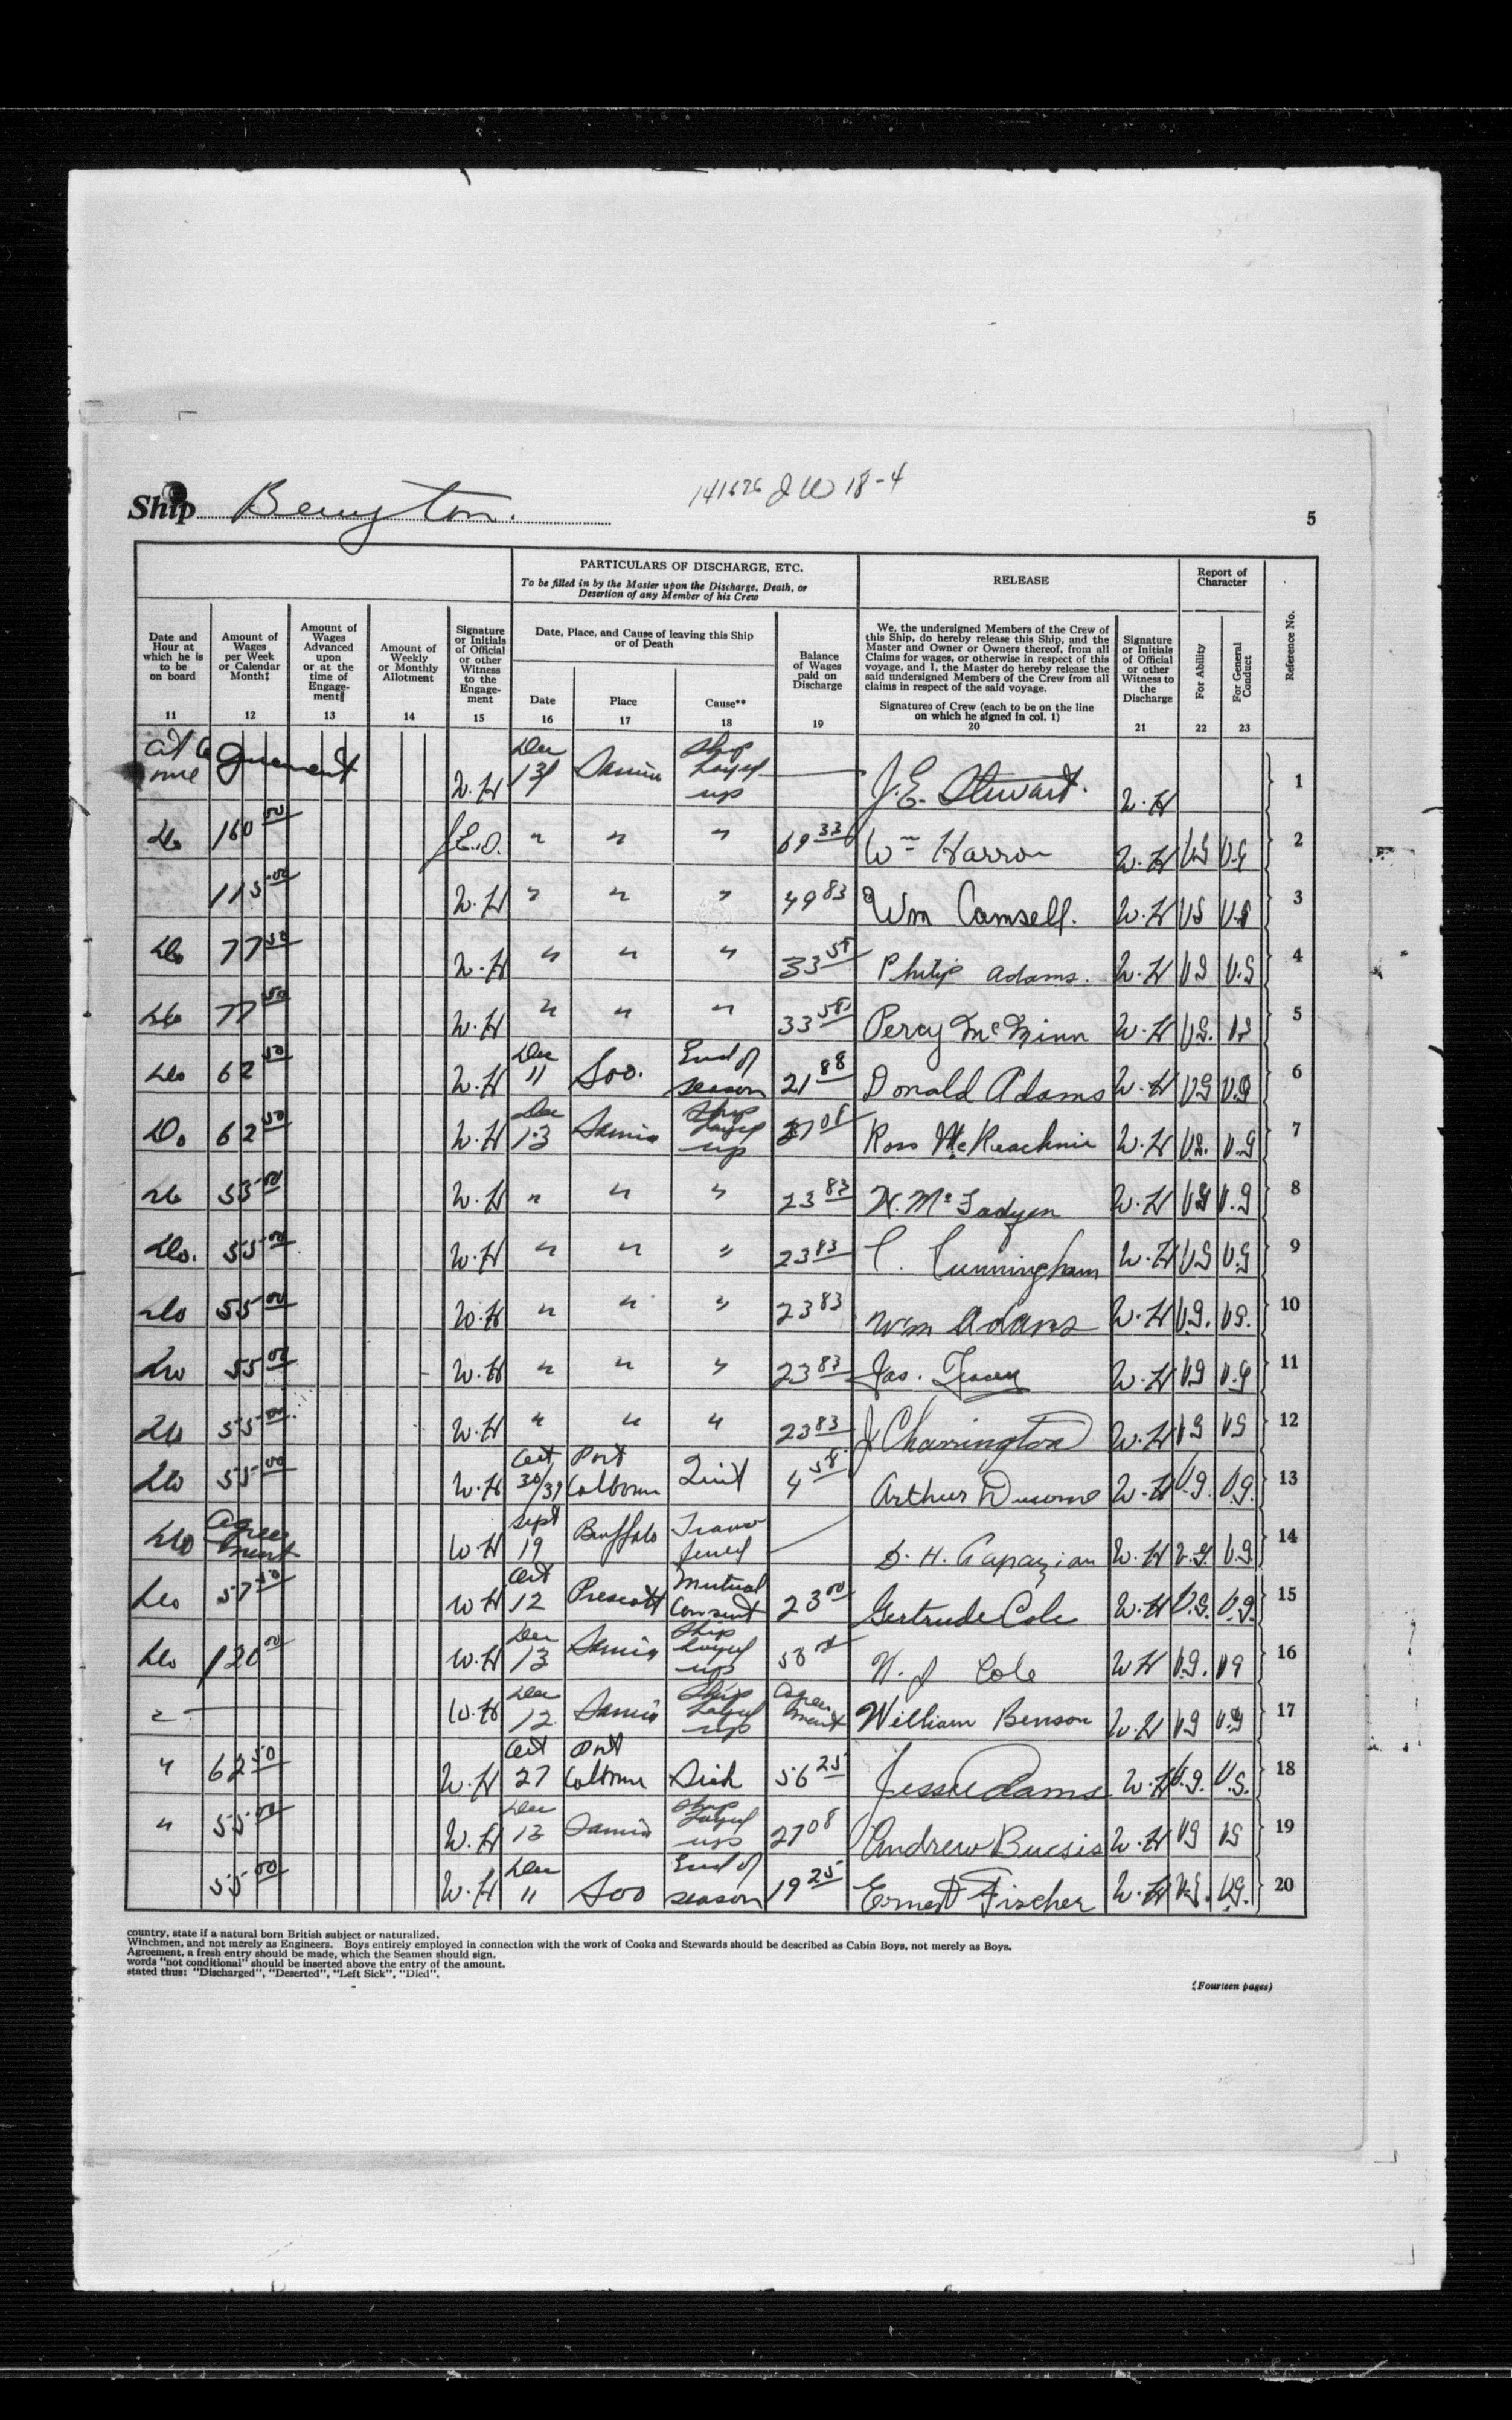 Ship
141676 JW 18-4
5
PARTICULARS OF DISCHARGE, ETC.
To be filled in by the Master upon the Discharge, Death, or
Desertion of any Member of his Crew
RELEASE
Report of
Character
Reference No.
Date and
Hour at
which he is
to be
on board
11
Amount of
Wages
per Week
or Calendar
Month‡
12
Amount of
Wages
Advanced
upon
or at the
time of
Engage-
ment‖
13
Amount of
Weekly
or Monthly
Allotment
14
Signature
or Initials
of Official
or other
Witness
to the
Engage-
ment
15
Date, Place, and Cause of leaving this Ship
or of Death
Date
16
Place
17
Cause**
18
Balance
of Wages
paid on
Discharge
19
We, the undersigned Members of the Crew of
this Ship, do hereby release this Ship, and the
Master and Owner or Owners thereof, from all
Claims for wages, or otherwise in respect of this
voyage, and I, the Master do hereby release the
said undersigned Members of the Crew from all
claims in respect of the said voyage.
Signatures of Crew (each to be on the line
on which he signed in col. 1)
20
Signature
or Initials
of Official
or other
Witness to
the
Discharge
21
For Ability
22
For General
Conduct
23
W.H Dec 13 Sarnia Ship Layed up J.E. Stewart. W.H 1
Do 160 00 " " " 69 33 Wm Harron W.H VG V.G 2
115 00 W.H " " " 49 83 Wm Camsell. W.H VG V.G 3
Do 77 50 W.H " " " 33 58 Philip Adams. W.H VG V.G 4
Do 77 50 W.H " " " 33 58 Percy W.H VG. VG 5
Do 62 50 W.H Dec 11 Soo. End of season 21 88 Donald Adams W.H VG V.G 6
Do 62 50 W.H Dec 13 Sarnia Ship Layed up Ross W.H VG. V.G 7
Do 55 00 W.H " " " 23 83 McFadyen W.H VG V.G 8
Do. 55 00 W.H " " " 23 83 C. Cunningham W.H VG V.G 9
Do 55 00 W.H " " " 23 83 Wm Adams W.H V.G. VG. 10
Do 55 00 W.H " " " 23 83 Jas. Tracey W.H VG V.G 11
Do 55 00 W.H " " " 23 83 J Charrington W.H VG VG 12
Do 55 00 W.H Oct 30/39 Port Colborne Quit 4 58 Arthur W.H V.G. V.G. 13
Do Agree ment W.H Sept 19 Buffalo Trans fered D. H. Papazian W.H V.G. V.G 14
Do 57 50 W.H Oct 12 Prescott Mutual Consent 23 00 Gertrude Cole W.H V.G. V.G. 15
Do 120 00 W.H Dec 13 Sarnia Ship Layed up Cole W.H V.G. VG 16
" W.H Dec 12 Sarnia Ship Layed up Agree ment William Benson W.H VG V.G 17
" 62 50 W.H Oct 27 Port Colborne Sick 56 25 Jesse Adams W.H V.G. V.G. 18
" 55 00 W.H Dec 13 Sarnia Ship Layed up 27 08 Andrew Bucsis W.H VG VG 19
55 00 W.H Dec 11 Soo End of season 19 25 Ernest Fischer W.H V.G. V.G. 20
country, state if a natural born British subject or naturalized.
Winchmen, and not merely as Engineers. Boys entirely employed in connection with the work of Cooks and Stewards should be described as Cabin Boys, not merely as Boys.
Agreement, a fresh entry should be made, which the Seamen should sign.
words "not conditional" should be inserted above the entry of the amount.
stated thus: "Discharged", "Deserted", "Left Sick", "Died".
(Fourteen pages)